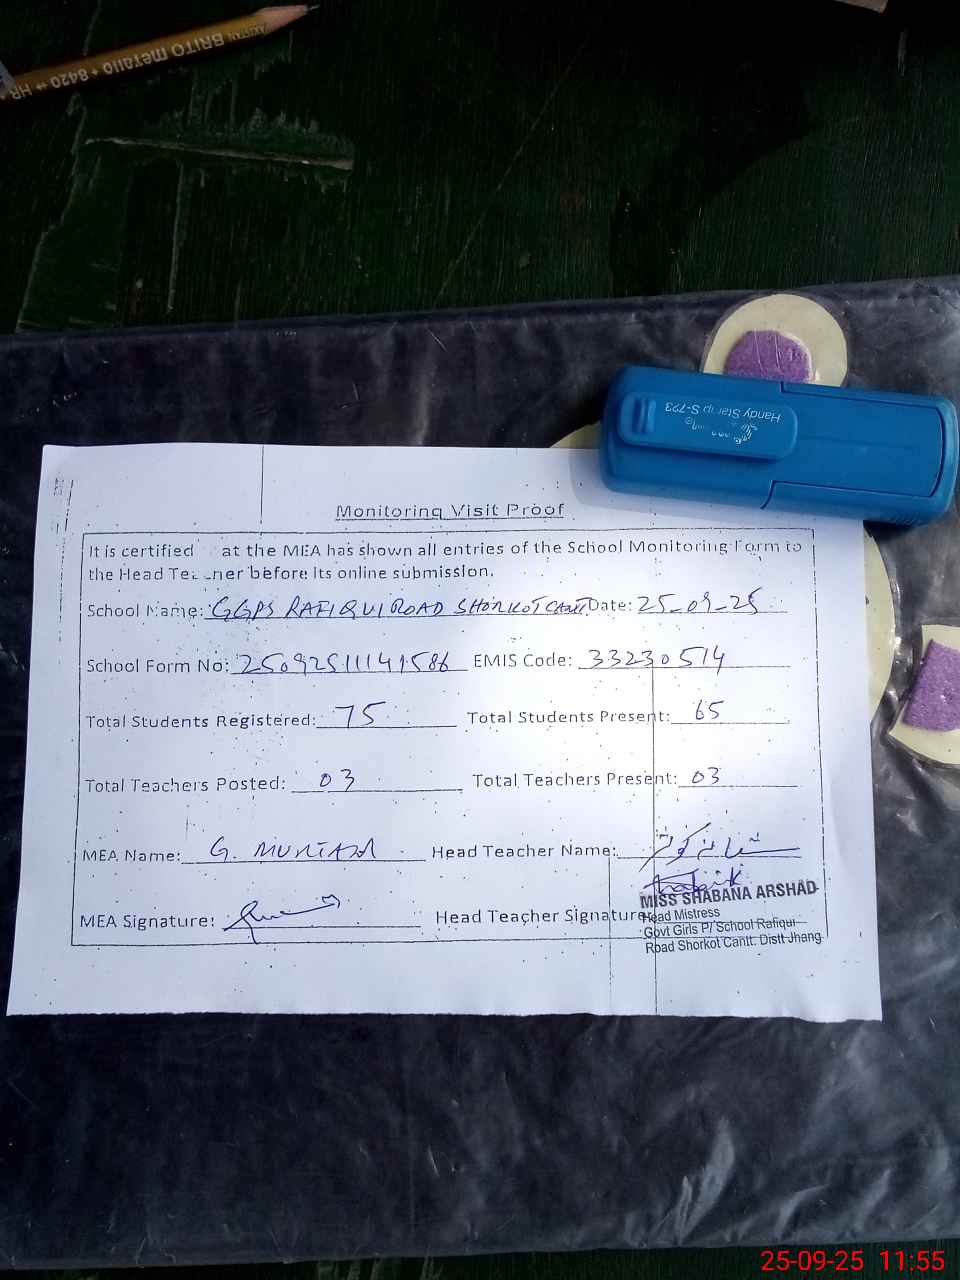 PAKISTAN BRITO METALLO • 8420 • HR
Handy Stamp S-723
Monitoring Visit Proof
It is certified at the MEA has shown all entries of the School Monitoring Form to
the Head Teacher before its online submission.
School Name: GGPS RAFIQUI ROAD SHORKOT CANTT Date: 25-09-25
School Form No: 25092511141586 EMIS Code: 33230514
Total Students Registered: 75 Total Students Present: 65
Total Teachers Posted: 03 Total Teachers Present: 03
MEA Name: G. MURTAZA Head Teacher Name:
MISS SHABANA ARSHAD
MEA Signature: Head Teacher Signature
Head Mistress
Govt Girls P/ School Rafiqui
Road Shorkot Cantt. Distt Jhang
25-09-25 11:55